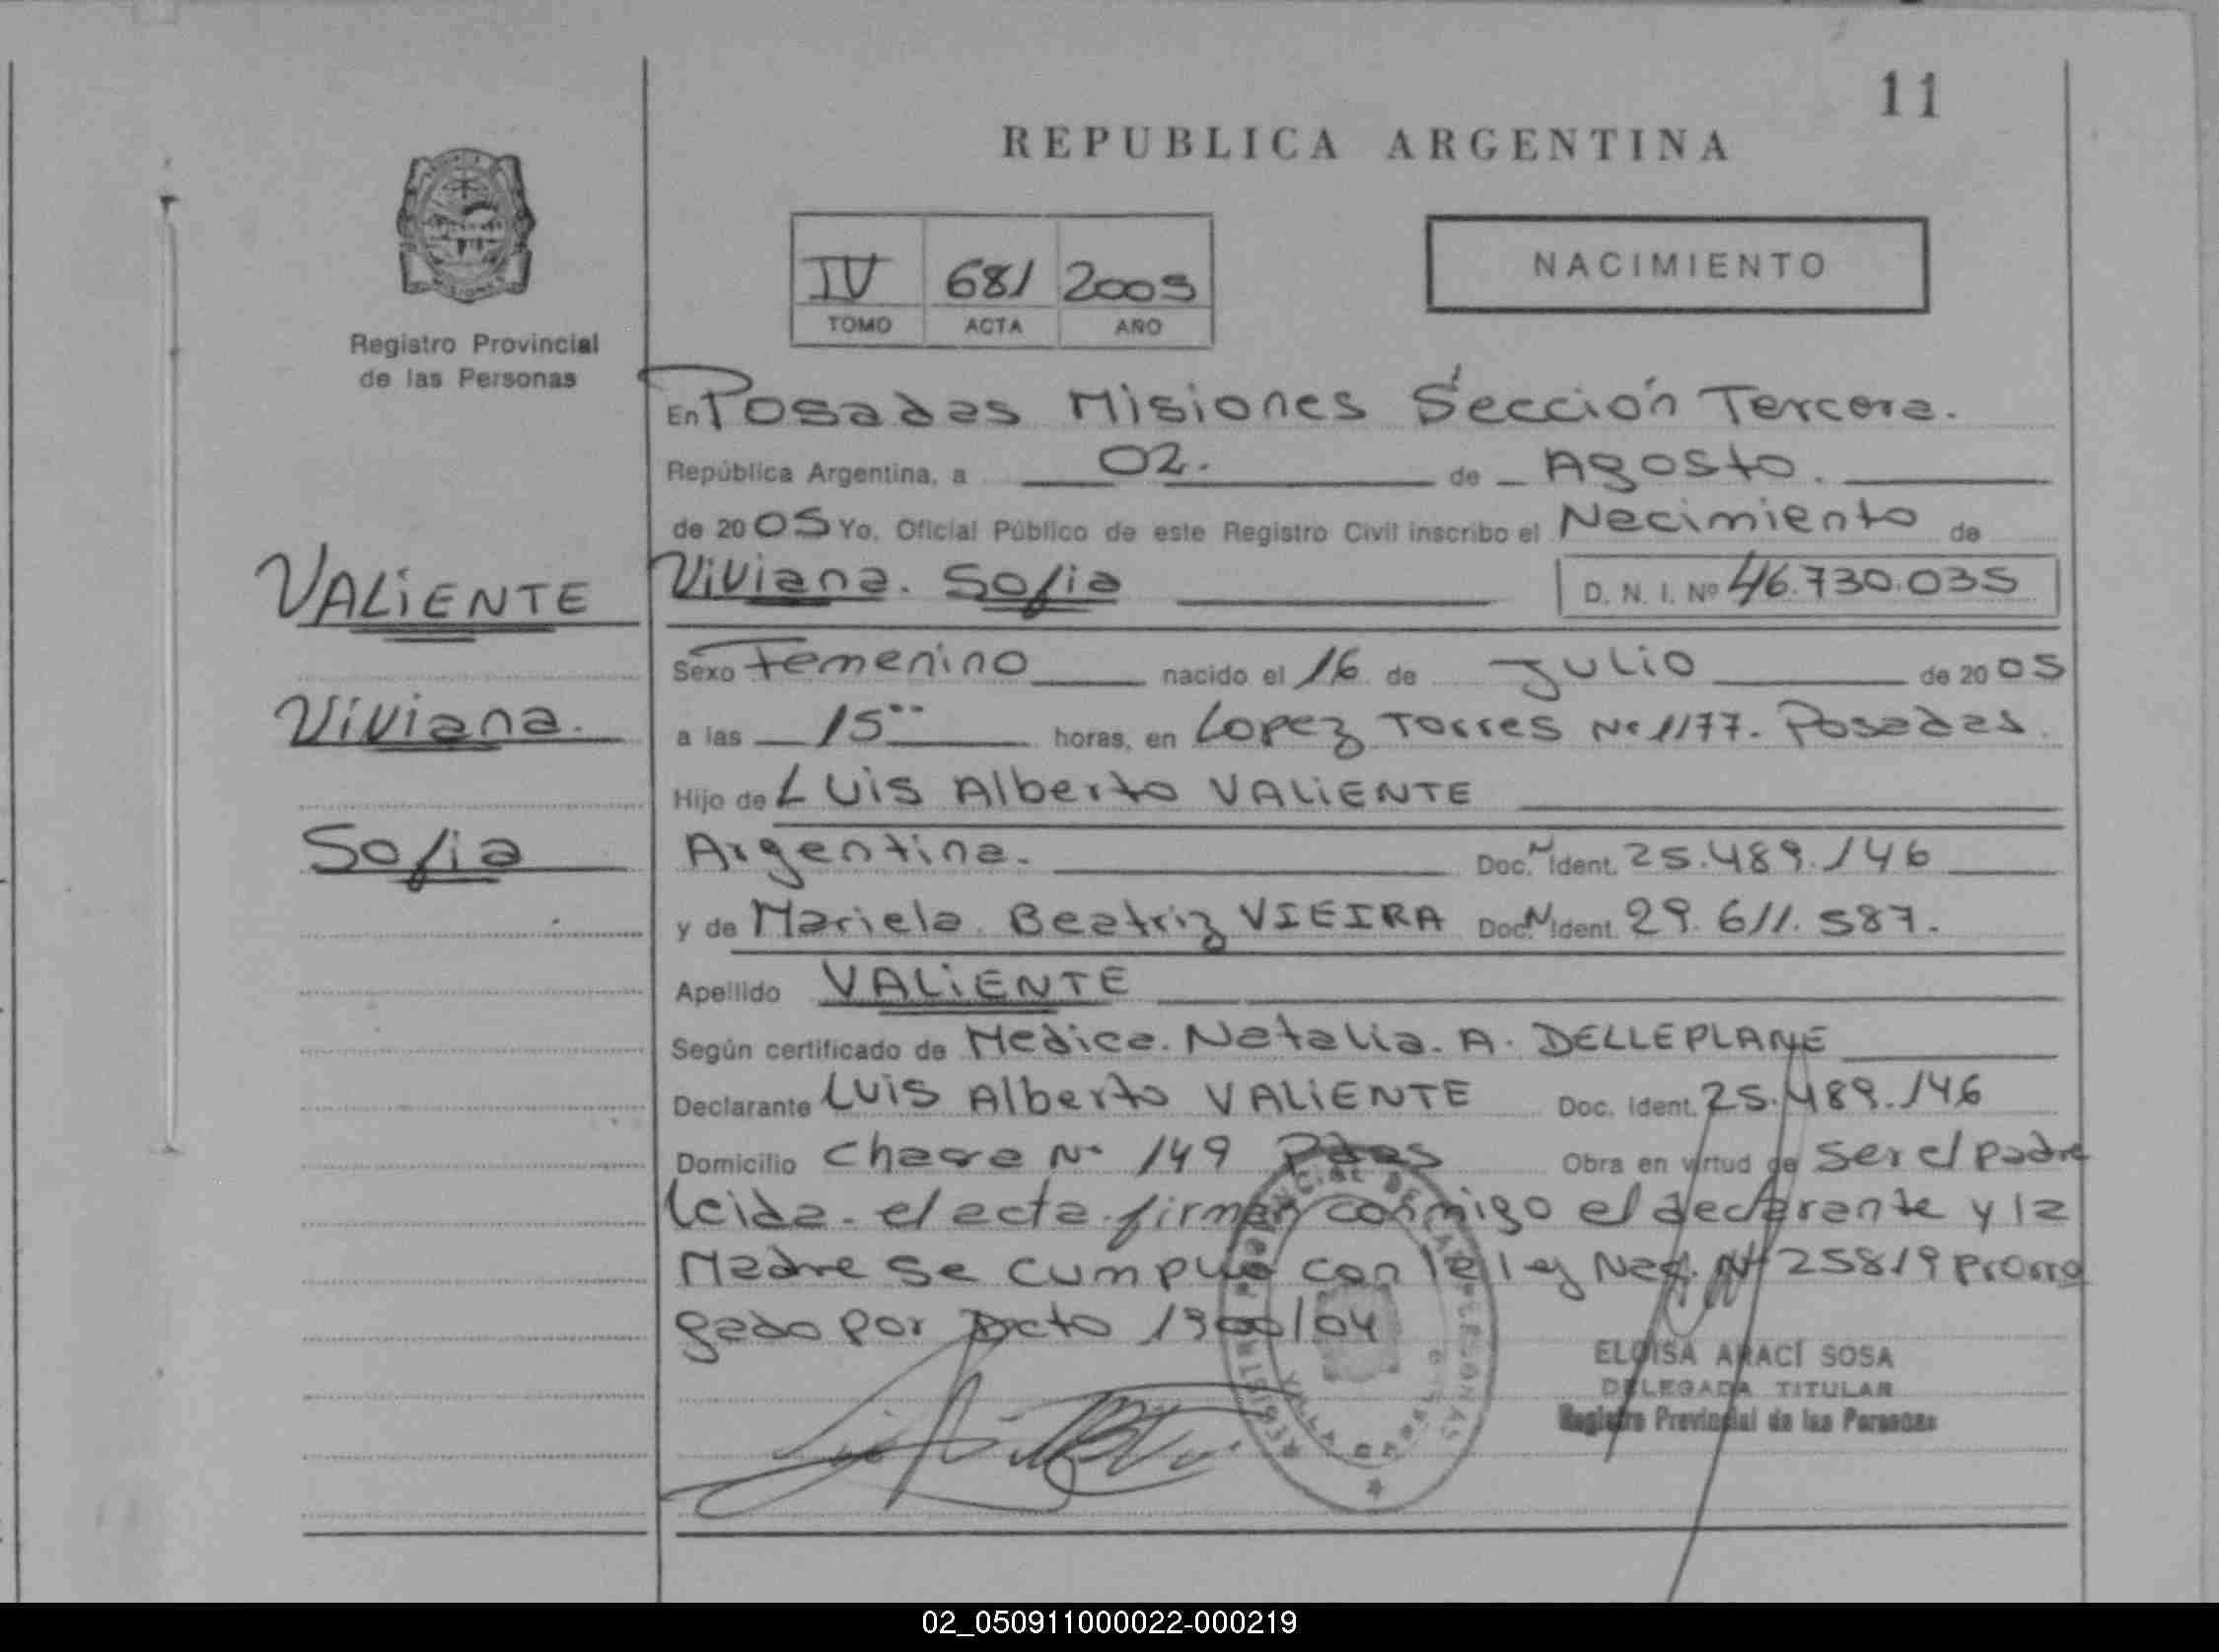 11
REPUBLICA ARGENTINA
NACIMIENTO
IV 681 2005
TOMO ACTA AÑO
Registro Provincial
de las Personas
VALIENTE
Viviana.
Sofia
En Posadas Misiones Sección Tercera.
República Argentina, a 02. de Agosto.
de 2005 Yo, Oficial Público de este Registro Civil inscribo el Nacimiento de
Viviana. Sofia D. N. I. Nº 46.730.035
Sexo Femenino nacido el 16 de Julio de 2005
a las 15 horas, en Lopez Torres Nº 1177. Posadas.
Hijo de Luis Alberto VALIENTE
Argentina. Doc. N Ident. 25.489.146
y de Mariela Beatriz VIEIRA Doc. N Ident. 29.611.587.
Apellido VALIENTE
Según certificado de Medica. Natalia. A. DELLEPLANE
Declarante Luis Alberto VALIENTE Doc. Ident. 25.489.146
Domicilio Chacra Nº 149 Pdas Obra en virtud de Ser el padre
Leida el acta firman conmigo el declarante y la
Madre se cumplio con la ley Nac. Nº 25819 prorro
gado por Dcto 1900/04
ELOISA ARACÍ SOSA
DELEGADA TITULAR
Registro Provincial de las Personas
02_050911000022-000219